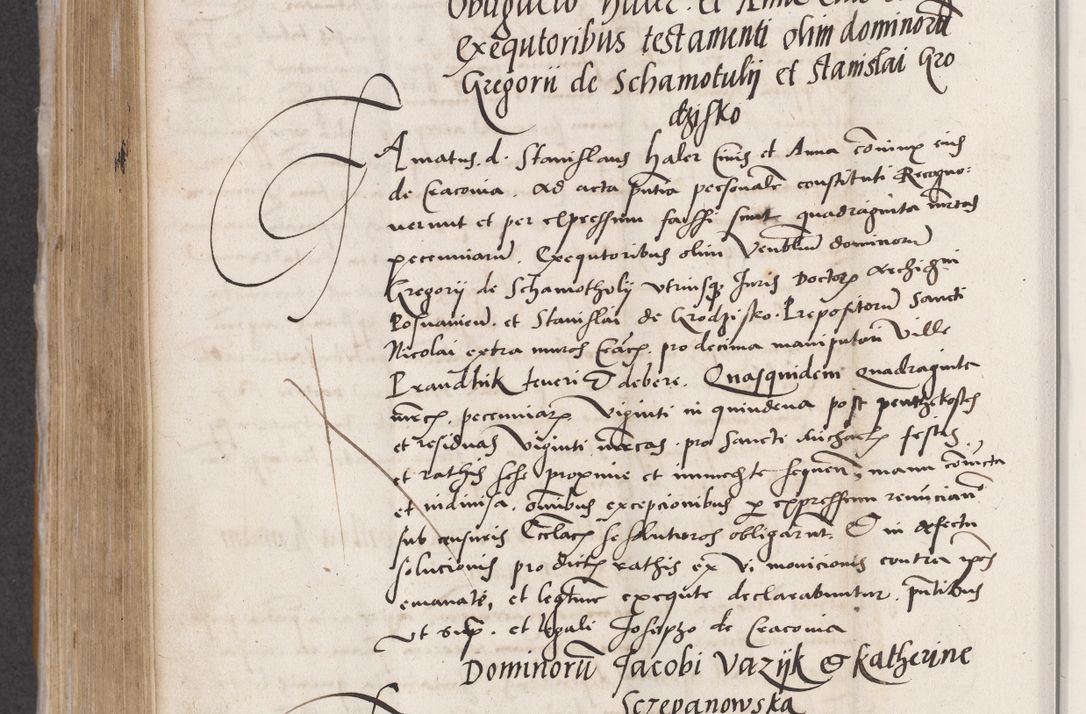 Obligacio Haller et Anne
Exequtoribus testamenti olim dominorũ
Gregorii de Schamotulij et Stanislai Gro
dzisko
Famatus d. Stanislaus Haler Civis et Anna cõiunx eius
de Cracovia. Ad acta pñtia personalẽ constituti Recogno-
verunt et per expressum fassi sunt quadraginta mrcas
pecunniarũ. Exequtoribus olim Venbliũ dominorũ
Gregorij de Schamothulij utriusqꝫ Juris Doctorꝫ Archi
Posnanien̄. et Stanislai de Grodzisko. Prepositorũ Sancti
Nicolai extra muros Cracꝫ. pro decima manipulari Ville
Prandnik teneri & debere. Quasquidem Quadraginta
mrcꝫ. pecunniarꝫ Viginti in quindena post penthekostes
et residuas Viginti mrcas pro Sancti Michaelꝫ festis
et rathis sese proxime et immediate sequen̄, manu cõiuncta
et indivisa. omibus excepcionibus ꝑ expressum renuncian̄
sub censuris Ecclꝫ se soluturos obligarũt. & in defectu
solucionis pro dictꝫ rathis ex Vi monicionis contra ipsos
emanatẽ, et legitime exequte declarabuntur. pñtibus
ut supꝫ. et legali Josepho de Cracovia
Dominorũ Jacobi Vazijk & Katherine
Sczepanowska